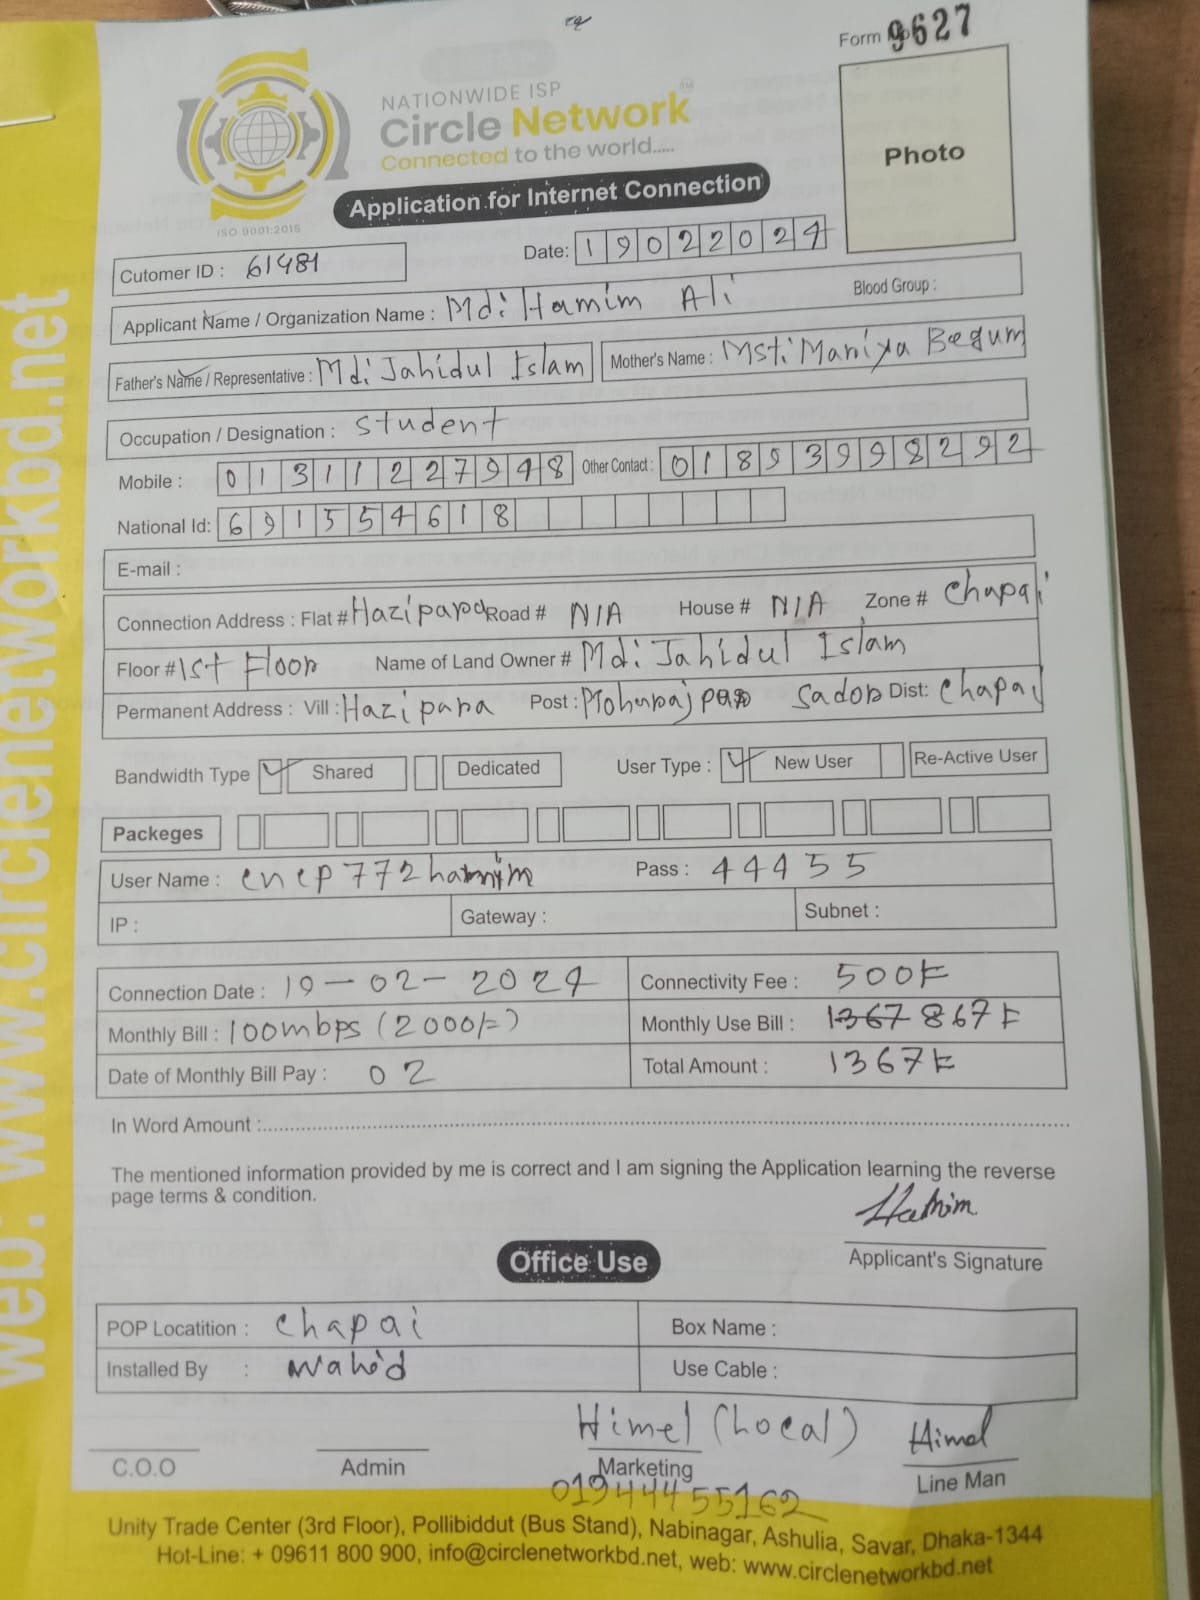 Form No 9627
NATIONWIDE ISP
Circle Network™
Connected to the world.....
Application for Internet Connection
Photo
ISO 9001:2015
Cutomer ID : 61481
Date: 19022024
Applicant Name / Organization Name : Md: Hamim Ali Blood Group :
Father's Name / Representative : Md: Jahidul Islam Mother's Name : Mst: Maniya Begum
Occupation / Designation : Student
Mobile : 01311227948 Other Contact : 01893998292
National Id: 691554618
E-mail :
Connection Address : Flat # Hazipara Road # N/A House # N/A Zone # Chapai
Floor # 1st Floor Name of Land Owner # Md: Jahidul Islam
Permanent Address : Vill : Hazipara Post : Sador Dist: Chapai
Bandwidth Type Shared Dedicated User Type : New User Re-Active User
Packeges
User Name : cncp772hamim Pass : 44455
IP : Gateway : Subnet :
Connection Date : 19-02-2024 Connectivity Fee : 500/=
Monthly Bill : 100mbps (2000/=) Monthly Use Bill : 1367 867/=
Date of Monthly Bill Pay : 02 Total Amount : 1367/=
In Word Amount :
The mentioned information provided by me is correct and I am signing the Application learning the reverse
page terms & condition.
Hamim
Applicant's Signature
Office Use
POP Locatition : Chapai Box Name :
Installed By : Wahid Use Cable :
Himel (Local) Himel
C.O.O Admin Marketing Line Man
01944455162
Unity Trade Center (3rd Floor), Pollibiddut (Bus Stand), Nabinagar, Ashulia, Savar, Dhaka-1344
Hot-Line: + 09611 800 900, info@circlenetworkbd.net, web: www.circlenetworkbd.net
web: www.circlenetworkbd.net